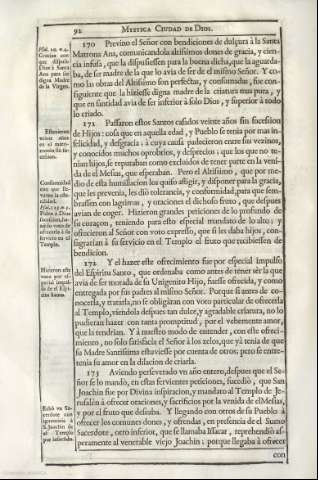 92 MYSTICA CIUDAD DE DIOS.
170 Previno el Señor con bendiciones de dulçura à la Santa
Matrona Ana, comunicandola altissimos dones de gracia, y cien-
cia infusa, que la dispusiessen para la buena dicha, que la aguarda-
ba, de ser madre de la que lo avia de ser de el mismo Señor. Y co-
mo las obras del Altissimo son perfectas, y consumadas, fue con-
siguiente que la hiziesse digna madre de la criatura mas pura, y
que en santidad avia de ser inferior à solo Dios, y superior à todo
lo criado.
171 Passaron estos Santos casados veinte años sin sucession
de Hijos: cosa que en aquella edad, y Pueblo se tenia por mas in-
felicidad, y desgracia: à cuya causa padecieron entre sus vecinos,
y conocidos muchos oprobrios, y desprecios: que los que no te-
nian hijos, se reputaban como excluidos de tener parte en la veni-
da de el Mesias, que esperaban. Pero el Altissimo, que por me-
dio de esta humillacion los quiso afligir, y disponer para la gracia,
que les prevenia, les diò tolerancia, y conformidad, para que sem-
brassen con lagrimas, y oraciones el dichoso fruto, que despues
avian de coger. Hizieron grandes peticiones de lo profundo de
su coraçon, teniendo para esto especial mandato de lo alto; y
ofrecieron al Señor con voto expresso, que si les daba hijos, con-
sagrarian à su servicio en el Templo el fruto que recibiessen de
bendicion.
172 Y el hazer este ofrecimiento fue por especial impulso
del Espiritu Santo, que ordenaba como antes de tener sèr la que
avia de ser morada de su Unigenito Hijo, fuesse ofrecida, y como
entregada por sus padres al mismo Señor. Porque si antes de co-
nocerla, y tratarla, no se obligaran con voto particular de ofrecerla
al Templo, viendola despues tan dulce, y agradable criatura, no lo
pudieran hazer con tanta promptitud, por el vehemente amor,
que la tendrian. Y à nuestro modo de entender, con este ofreci-
miento, no solo satisfacia el Señor à los zelos, que yà tenia de que
su Madre Santissima estuviesse por cuenta de otros; pero se entre-
tenia su amor en la dilacion de criarla.
173 Aviendo perseverado un año entero, despues que el Se-
ñor se lo mandò, en estas fervientes peticiones, sucediò, que San
Joachin fue por Divina inspiracion, y mandato al Templo de Je-
rusalèn à ofrecer oraciones, y sacrificios por la venida de el Mesias,
y por el fruto que deseaba. Y llegando con otros de su Pueblo à
ofrecer los comunes dones, y ofrendas, en presencia de el Sumo
Sacerdote, otro inferior, que se llamaba Issacar, reprehendiò as-
peramente al venerable viejo Joachin; porque llegaba à ofrecer
con
Psal. 20. v. 4.
Gracias con
que dispuso
Dios à Santa
Ana para ser
digna Madre
de la Virgen.
Estuvieron
veinte años
en el matri-
monio sin su-
cession.
Conformidad
con que lle-
varon la este-
rilidad.
Psal. 125. v. 5.
Piden à Dios
sucession, ha-
ziendo voto de
ofrecerla à su
servicio en el
Templo.
Hizieron este
voto por es-
pecial impul-
so de el Espi-
ritu Santo.
Echò un Sa-
cerdote con
aspereza à
S. Joachin de
el Templo
por infecundo.